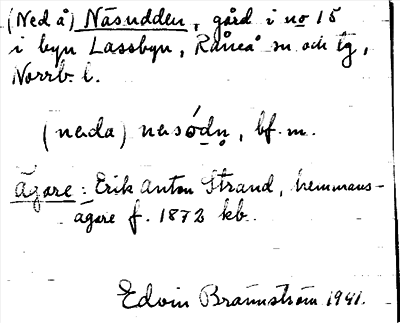 (Ned å) Näsudden, gård i no 15
i byn Lassbyn, Råneå sn och tg,
Norrb. l.
(neda) nesódn̥, bf. m.
Ägare: Erik Anton Strand, hemmans-
ägare f. 1872 kb.
Edvin Brännström 1941.